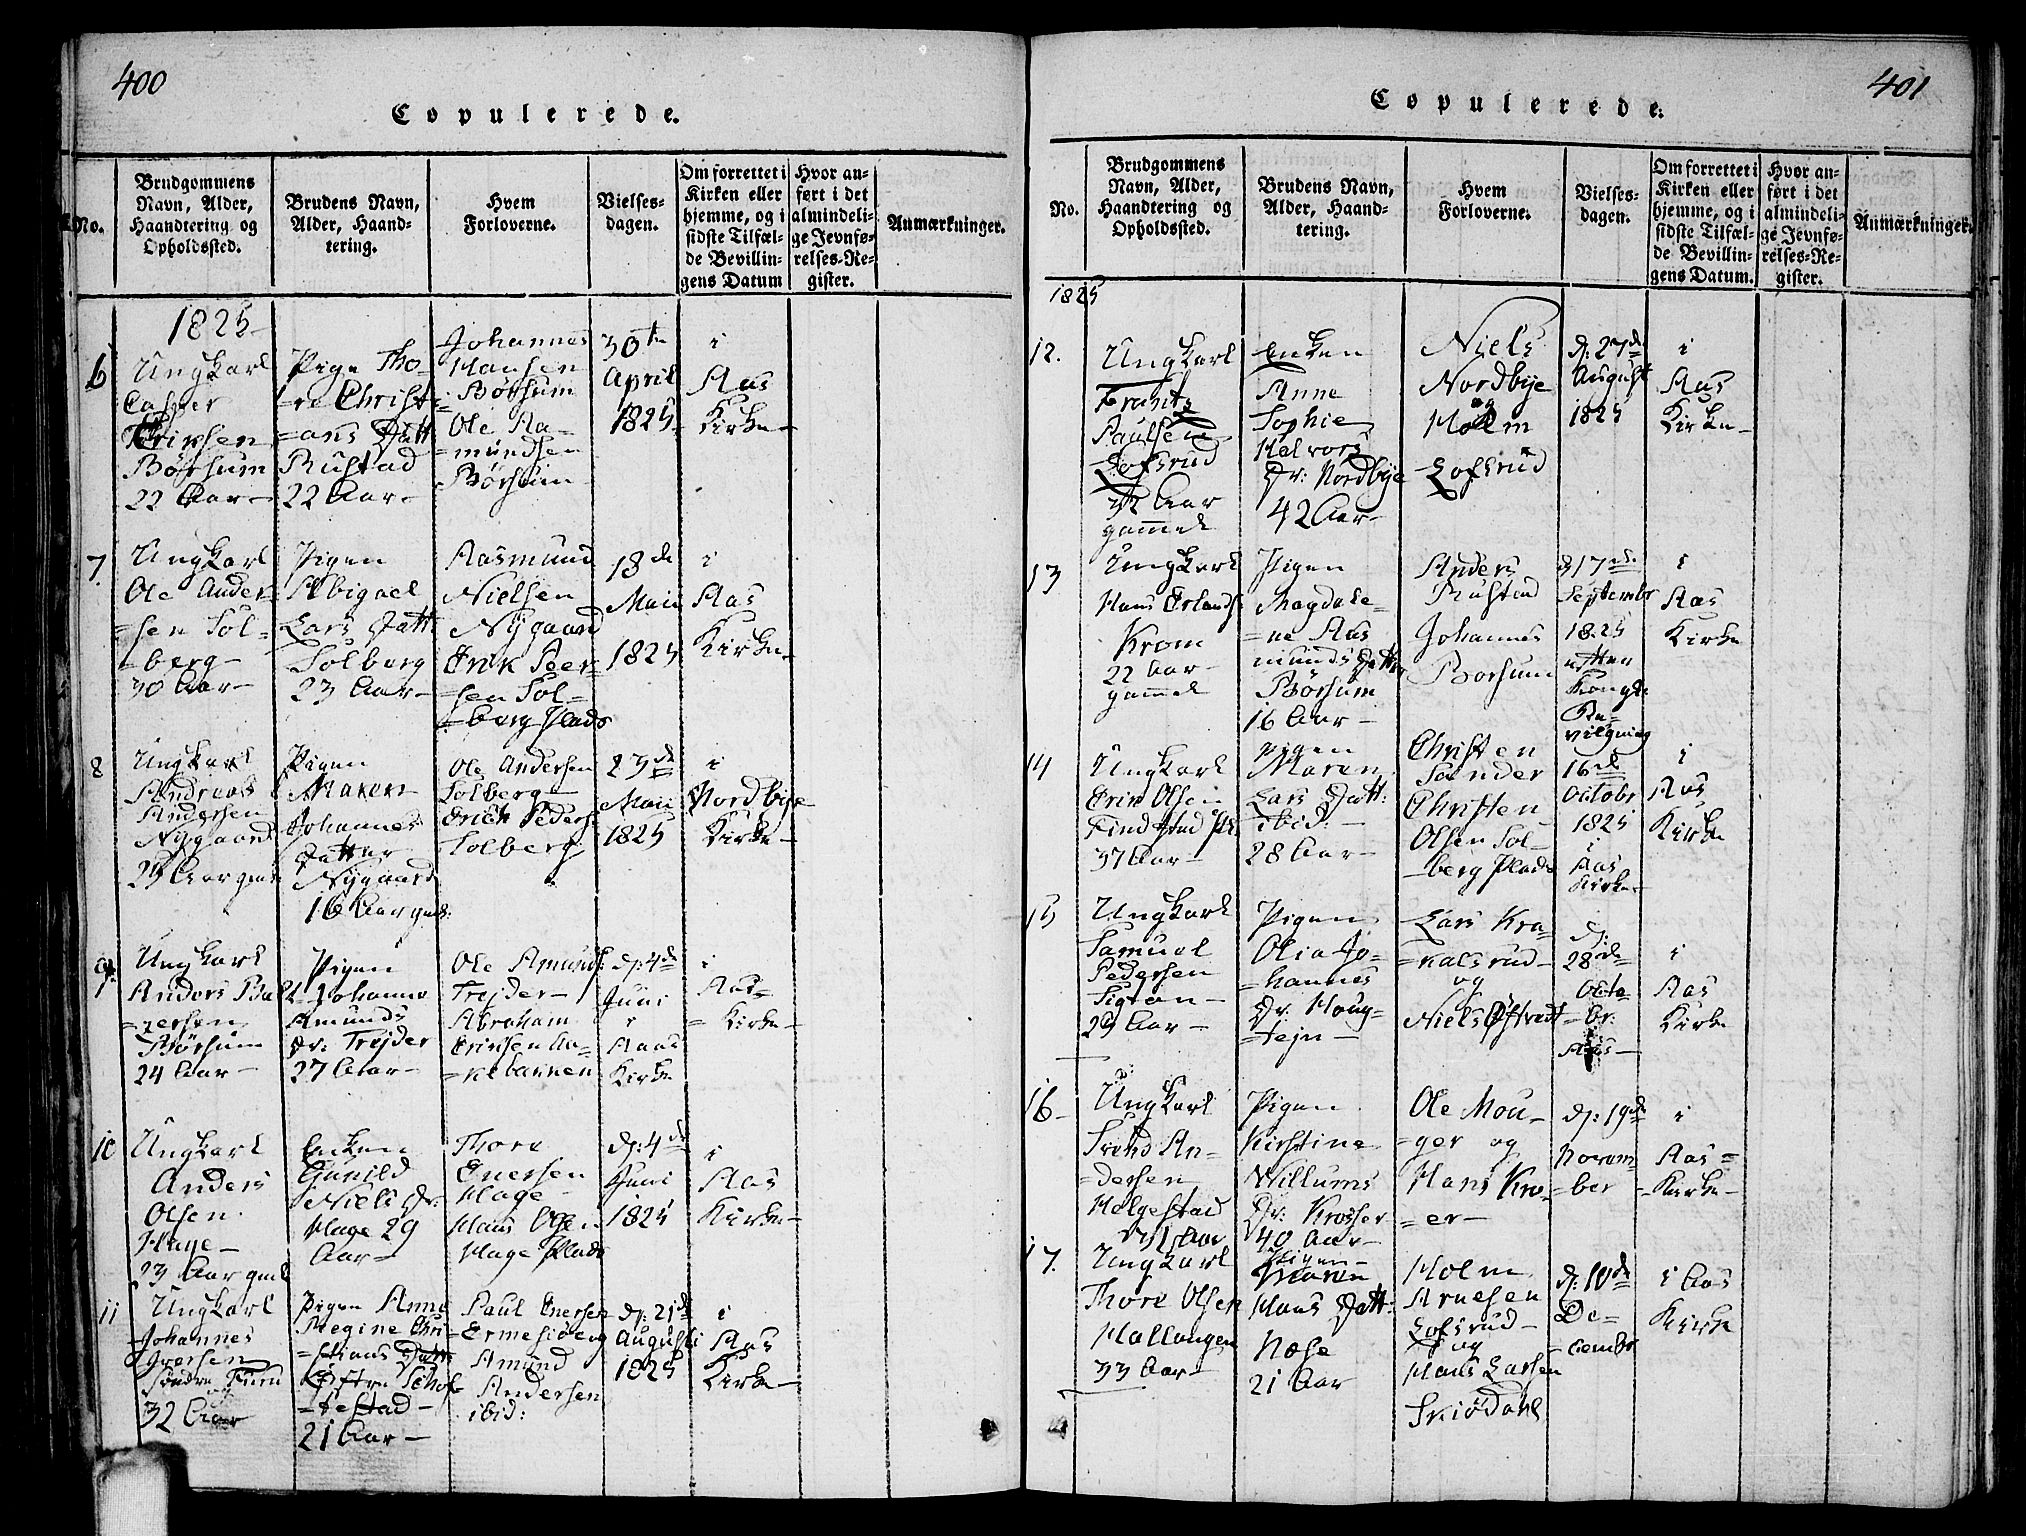 400
Copulerede.
No.
Brudgommens
Navn, Alder,
Haandtering og
Opholdssted.
Brudens Navn,
Alder, Haand-
tering.
Hvem
Forloverne.
Vielses-
dagen.
Om forrettet i
Kirken eller
hjemme, og i
sidste Tilfæl-
de Bevillin-
gens Datum
Hvor an-
ført i det
almindeli-
ge Jevnfø-
relses-Re-
gister.
Anmærkninger.
1825
6
Ungkarl
Casper
Eriksen
Börsum
22 Aar
Pige Tho-
=re Christi-
=ans Datt
Rustad
22 Aar
Johannes
Hansen
Börsum
Ole Aa-
=mundsen
Börsum
30te
April
1825
i
Aas
Kirke
7
Ungkarl
Ole Ander-
=sen Sol-
=berg
30 Aar
Pigen
Abigael
Lars Datt
Solberg
23 Aar
Aasmund
Nielsen
Nygaard
Erik Peer-
=sen Sol-
=berg Plads
18de
Maii
1825
i
Aas
Kirke
8
Ungkarl
Andreas
Andersen
Nygaard
23 Aar gml
Pigen
Maren
Johannes
Datter
Nygaard
16 Aar gml:
Ole Andersen
Solberg
Erich Peders
Solberg
23de
Maii
1825
i
Nordbye
Kirke
9
Ungkarl
Anders Bal
=zersen
Börsum
24 Aar
Pigen
Johanne
Amunds
Dr: Trejder
27 Aar
Ole Amunds:
Trejder
Abraham
Eriksen Aa-
=kebakken
d: 4de
Juni
i
Aas
Kirke
i
Aas
=Kirke
10
Ungkarl
Anders
Olsen
Hage
23 Aar gml
Enken
Gunild
Niels Dr:
Hage 29
Aar
Thore
Enersen
Hage
Hans Olsen
Hage Plads
d: 4de
Juni
1825
i
Aas
Kirke
11
Ungkarl
Johannes
Iversen
Søndre Furu
32 Aar
Pigen Anne
Regine Chri
=stians Datt
Østre Schof
=testad
21 Aar
Paul Enersen
Ermesiöerg
Amund
Andersen
ibid:
d: 21de
Augusti
1825
i
Aas
Kirke
401
Copulerede.
No.
Brudgommens
Navn, Alder,
Haandtering og
Opholdssted.
Brudens Navn,
Alder, Haand-
tering.
Hvem
Forloverne.
Vielses-
dagen.
Om forrettet i
Kirken eller
hjemme, og i
sidste Tilfæl-
de Bevillin-
gens Datum.
Hvor an-
ført i det
almindeli-
ge Jevnfø-
relses-Re-
gister.
Anmærkninger.
1825
12.
Ungkarl
Frants
Paulsen
Lofsrud
32 Aar
gammel
Enken
Anne
Sophie
Halvors
Dr: Nordbye
42 Aar
Niels
Nordbye
og
Holm
Lofsrud
d: 27de
August
1825
i
Aas
Kirke
13
Ungkarl
Hans Erlands
Krom
22 Aar
gammel
Pigen
Magdale-
=ne Aas
munds Datter
Börsum
16 Aar
Anders
Rustad
Johannes
Borsum
d 17de
Septembr
1825
efter
Kongl:
Be-
vilgning
i
Aas
Kirke
14
Ungkarl
Erik Olsen
Findstad Pl.
37 Aar
Pigen
Maren
Lars Datt:
ibid:
28 Aar
Christen
Sander
Christen
Olsen Sol-
=berg Plads
16de
Octobr
1825
i
Aas
Kirke
i
Aas
Kirke
15
Ungkarl
Samuel
Pedersen
23 Aar
Pigen
Olia Jo-
=hannes
Dr. Houg-
=tejn
Lars Kra-
=kalsrud
og
Niels Østredt
d:
28de
Octo-
=br:
Aas
i
Aas
Kirke
16
Ungkarl
Svend An-
=dersen
Holgestad
31 Aar
Pigen
Kirstine
Willums
Dr: Krosser
40 Aar
Ole Mou-
=ger og
Hans Kro-
=er
d: 19de
Novem-
=ber
i
Aas=
=Kirke
17.
Ungkarl
Thore Olsen
Hallangen
33 Aar
Pigen
Maren
Hans Datt:
Nese
21 Aar
Holm
Arnesen
Lofsrud
og
Hans Larsen
Skiödahl
d: 10de
De-
=cembr
i Aas
Kirke